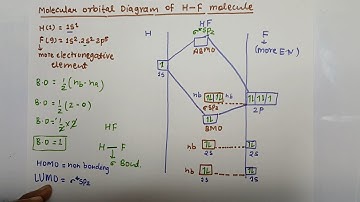 Molecular orbital Diagram of H-F molecule
H(1) = 1S¹
F(9) = 1S². 2S² 2P⁵
↓
more electronegative
element
B.O = 1/2 (nb - na)
B.O = 1/2 (2-0)
B.O = 1/2 x 2
B.O = 1
HF
H — F
↓
σ Bond.
HOMO = non bonding
LUMO = σ*SP₂
H
HF
F
(more E.N)
σ*SP₂
ABMO
1
1S
nb
nb
σSP₂
BMO
2P
nb
2S
2S
nb
1S
1S